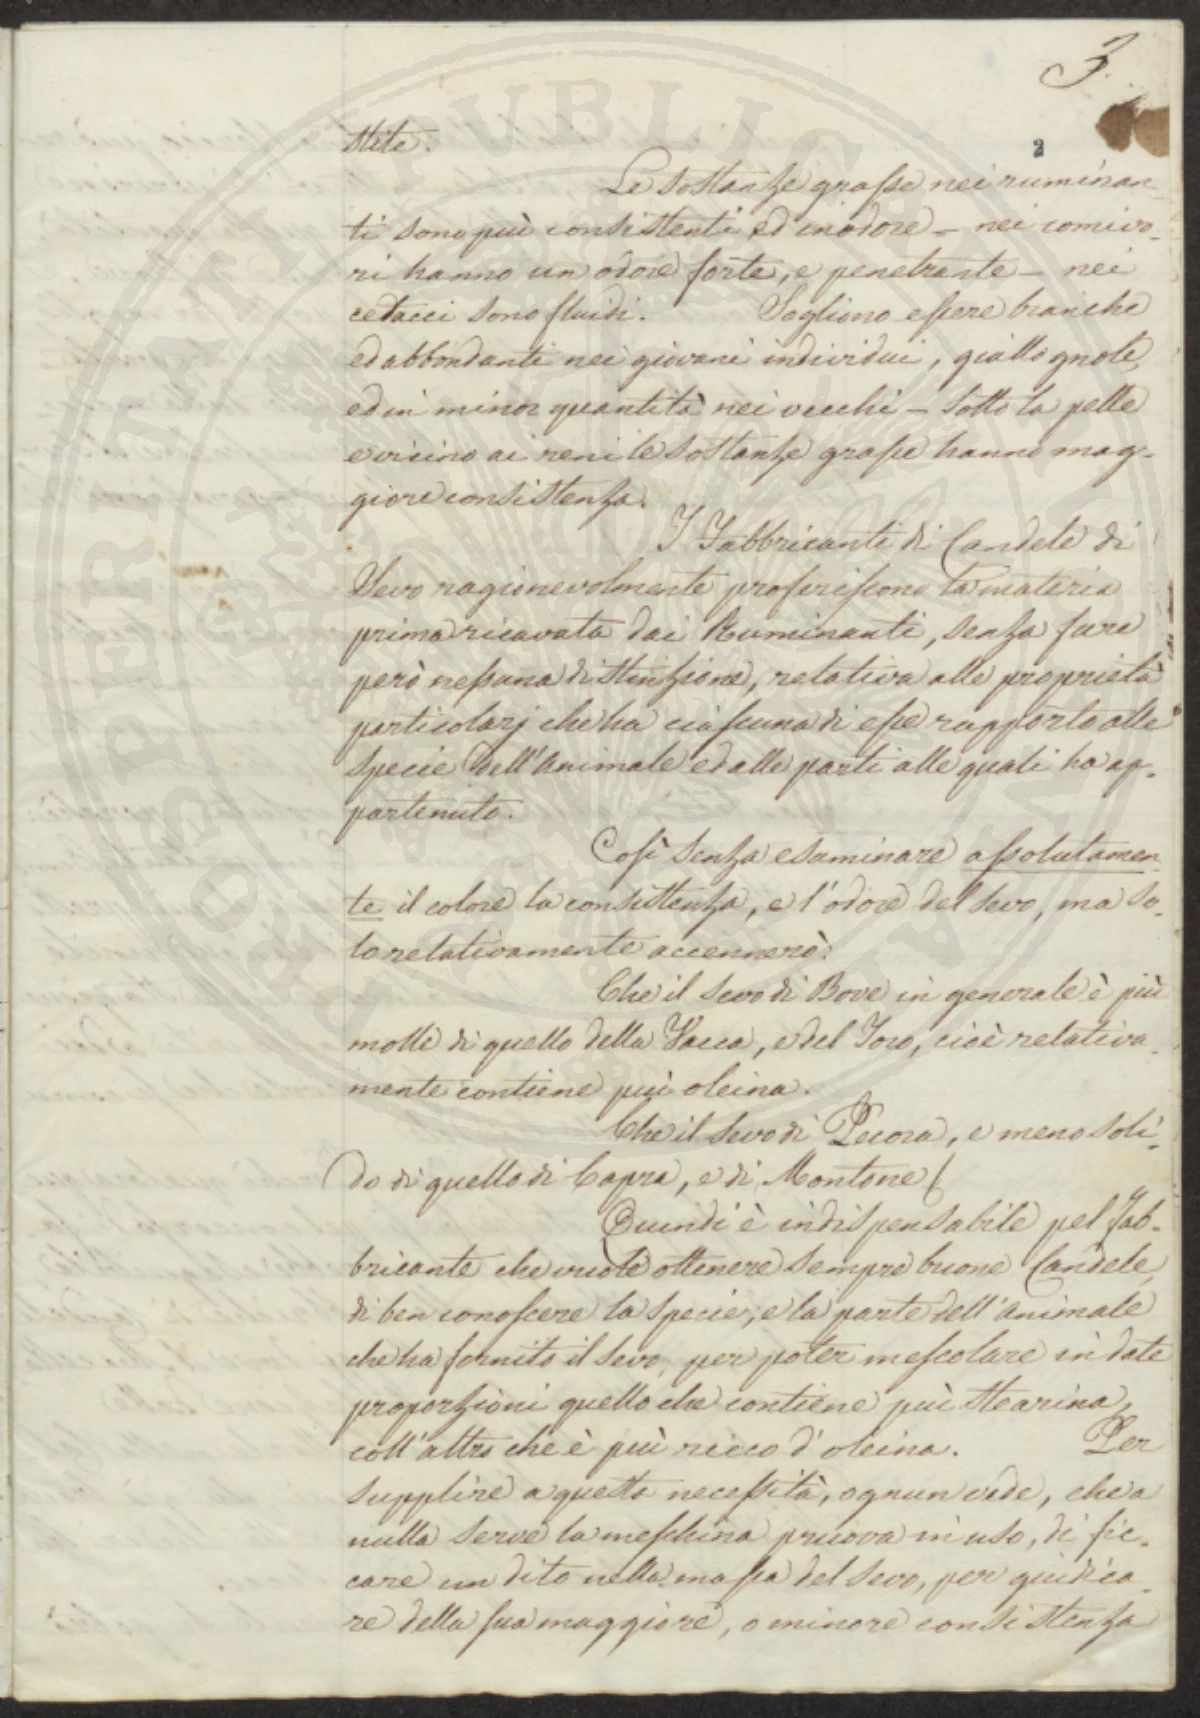 3.
2
stite.
Le sostanze grasse nei ruminan-
ti sono più consistenti ed inodore - nei carnivo-
ri hanno un odore forte, e penetrante - nei
cetacci sono fluidi. Sogliono essere bianche
ed abbondanti nei giovani individui, giallognole,
ed in minor quantità nei vecchi - Sotto la pelle
e vicino ai reni le sostanze grasse hanno mag-
giore consistenza.
I Fabbricanti di Candele di
Sevo ragionevolmente preferiscono la materia
prima ricavata dai Ruminanti, senza fare
però nessuna distinzione, relativa alle proprietà
particolarj che ha ciascuna di esse rapporto alle
specie dell'Animale ed alle parti alle quali ha ap-
partenuto.
Così senza esaminare assolutamen-
te il colore la consistenza, e l'odore del sevo, ma so-
lo relativamente accennerò:
Che il sevo di Bove in generale è più
molle di quello della Vacca, e del Toro, cioè relativa-
mente contiene più oleina.
Che il sevo di Pecora, e meno soli-
do di quello di Capra, e di Montone
Quindi è indispensabile pel fab-
bricante che vuole ottenere sempre buone Candele,
di ben conoscere la specie, e la parte dell'animale
che ha fornito il sevo, per poter mescolare in date
proporzioni quello che contiene più stearina,
coll'altro che è più ricco d'oleina. Per
supplire a questa necessità, ognun vede, che a
nulla serve la meschina pruova in uso, di fic-
care un dito nella massa del sevo, per giudica-
re della sua maggiore, o minore consistenza
PROSPERITATI PUBLICAE AUGENDAE